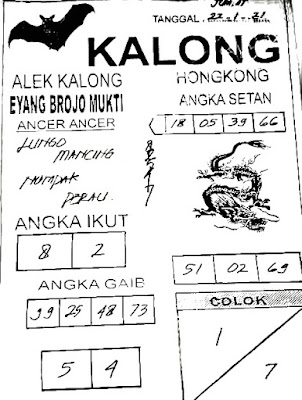 TANGGAL. 22-1-21
KALONG
ALEK KALONG
EYANG BROJO MUKTI
ANCER ANCER
LUNGO
MANCING
NUMPAK
PERAU.
ANGKA IKUT
8 2
ANGKA GAIB
99 25 48 73
5 4
HONGKONG
ANGKA SETAN
18 05 39 66
51 02 69
COLOK
1
7